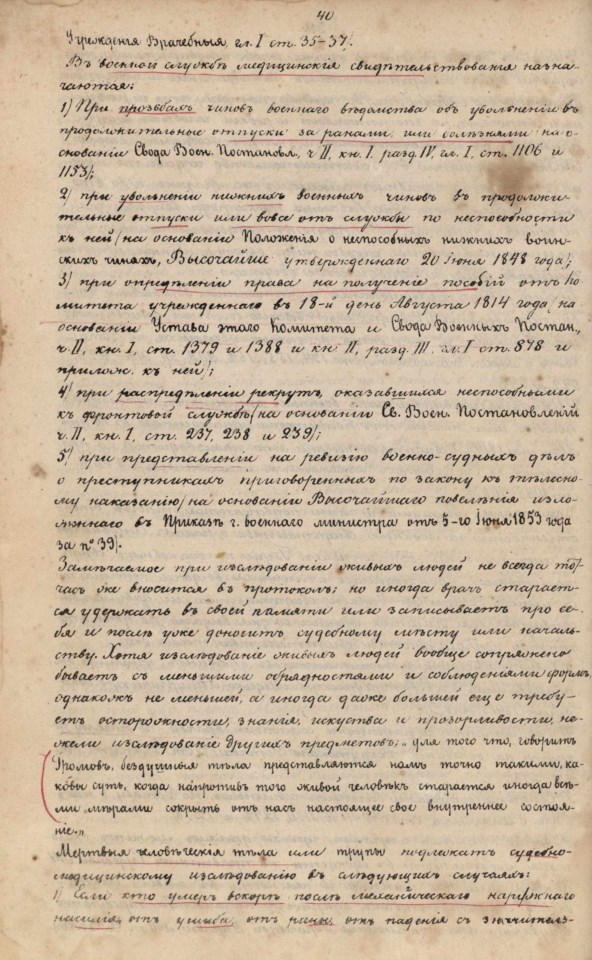 40
Учрежденiя Врачебныя, гл. I ст. 35-37/.
Въ военной службѣ медицинскiя свидѣтельствованiя назна-
чаются:
1) При прозьбахъ чиновъ военнаго вѣдомства объ увольненiи въ
продолжительные отпуски за ранами или болѣзнями на о-
снованiи Свода Воен. Постановл., ч II, кн. I. разд. IV, гл. I, ст. 1106 и
1153/;
2) при увольненiи нижнихъ военныхъ чиновъ въ продолжи-
тельные отпуски или вовсе отъ службы по неспособности
къ ней /на основанiи Положенiя о неспособныхъ нижнихъ воин-
скихъ чинахъ, Высочайше утвержденнаго 20 Iюня 1848 года/;
3) при опредѣленiи права на полученiе пособiй отъ Ко-
митета учрежденнаго въ 18-й день Августа 1814 года /на
основанiи Устава этаго Комитета и Свода Военныхъ Постан.,
ч. II, кн. I, ст. 1379 и 1388 и кн II, разд. III. гл. I ст. 878 и
прилож. къ ней/;
4) при распредѣленiи рекрутъ, оказавшихся неспособными
къ фронтовой службѣ /на основанiи Св. Воен. Постановленiй
ч. II, кн. I, ст. 237, 238 и 239/;
5) при представленiи на ревизiю военно-судныхъ дѣлъ
о преступникахъ приговоренныхъ по закону къ тѣлесно-
му наказанiю /на основанiи Высочайшаго повелѣнiя изло-
женнаго въ Приказѣ г. военнаго министра отъ 5-го Iюня 1853 года
за № 39/.
Замѣчаемое при изслѣдованiи живыхъ людей не всегда тот-
часъ же вносится въ протоколъ; но иногда врачъ старает-
ся удержать въ своей памяти или записываетъ про се-
бя и послѣ уже доноситъ судебному мѣсту или началь-
ству. Хотя изслѣдованiе живыхъ людей вообще сопряжено
бываетъ съ меньшими обрядностями и соблюденiями формъ,
однакожъ не меньшей, а иногда даже большей еще требу-
етъ осторожности, знанiя, искуства и прозорливости, не-
жели изслѣдованiе другихъ предметовъ; „для того что, говоритъ
Громовъ, бездушныя тѣла представляются намъ точно такими, ка-
ковы суть, когда напротивъ того живой человѣкъ старается иногда всѣ-
ми мѣрами сокрыть отъ насъ настоящее свое внутреннее состоя-
нiе.„
Мертвыя человѣческiя тѣла или трупы подлежатъ судебно-
медицинскому изслѣдованiю въ слѣдующихъ случаяхъ:
1) Если кто умеръ вскорѣ послѣ механическаго наружнаго
насилiя, отъ ушиба, отъ раны, отъ паденiя съ значитель-